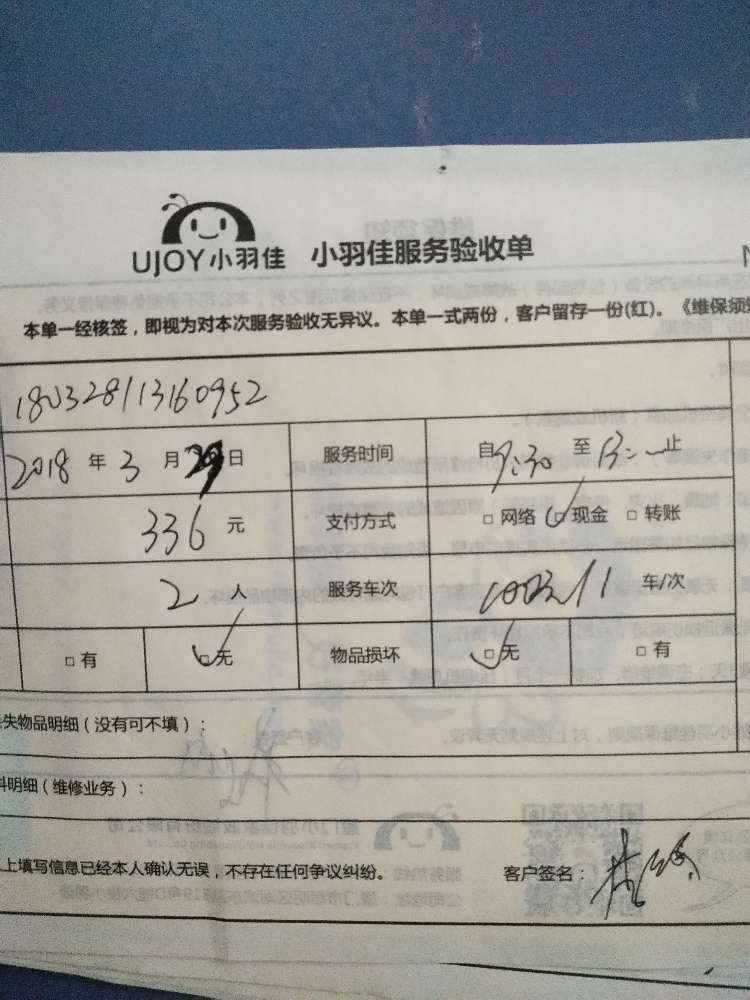 UJOY小羽佳 小羽佳服务验收单
本单一经核签，即视为对本次服务验收无异议。本单一式两份，客户留存一份(红)。《维保须
180328113160952
2018 年 3 月 29 日 服务时间 自 9:30 至 止
336 元 支付方式 □ 网络 □ 现金 □ 转账
2 人 服务车次 车/次
□ 有 □ 无 物品损坏 □ 无 □ 有
失物品明细（没有可不填）：
料明细（维修业务）：
上填写信息已经本人确认无误，不存在任何争议纠纷。 客户签名：